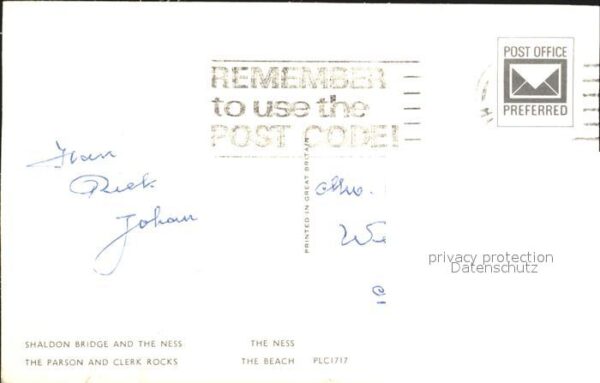 POST OFFICE
PREFERRED
REMEMBER
to use the
POST CODE!
Rick
Johan
PRINTED IN GREAT BRITAIN
privacy protection
Datenschutz
SHALDON BRIDGE AND THE NESS THE NESS
THE PARSON AND CLERK ROCKS THE BEACH PLC1717